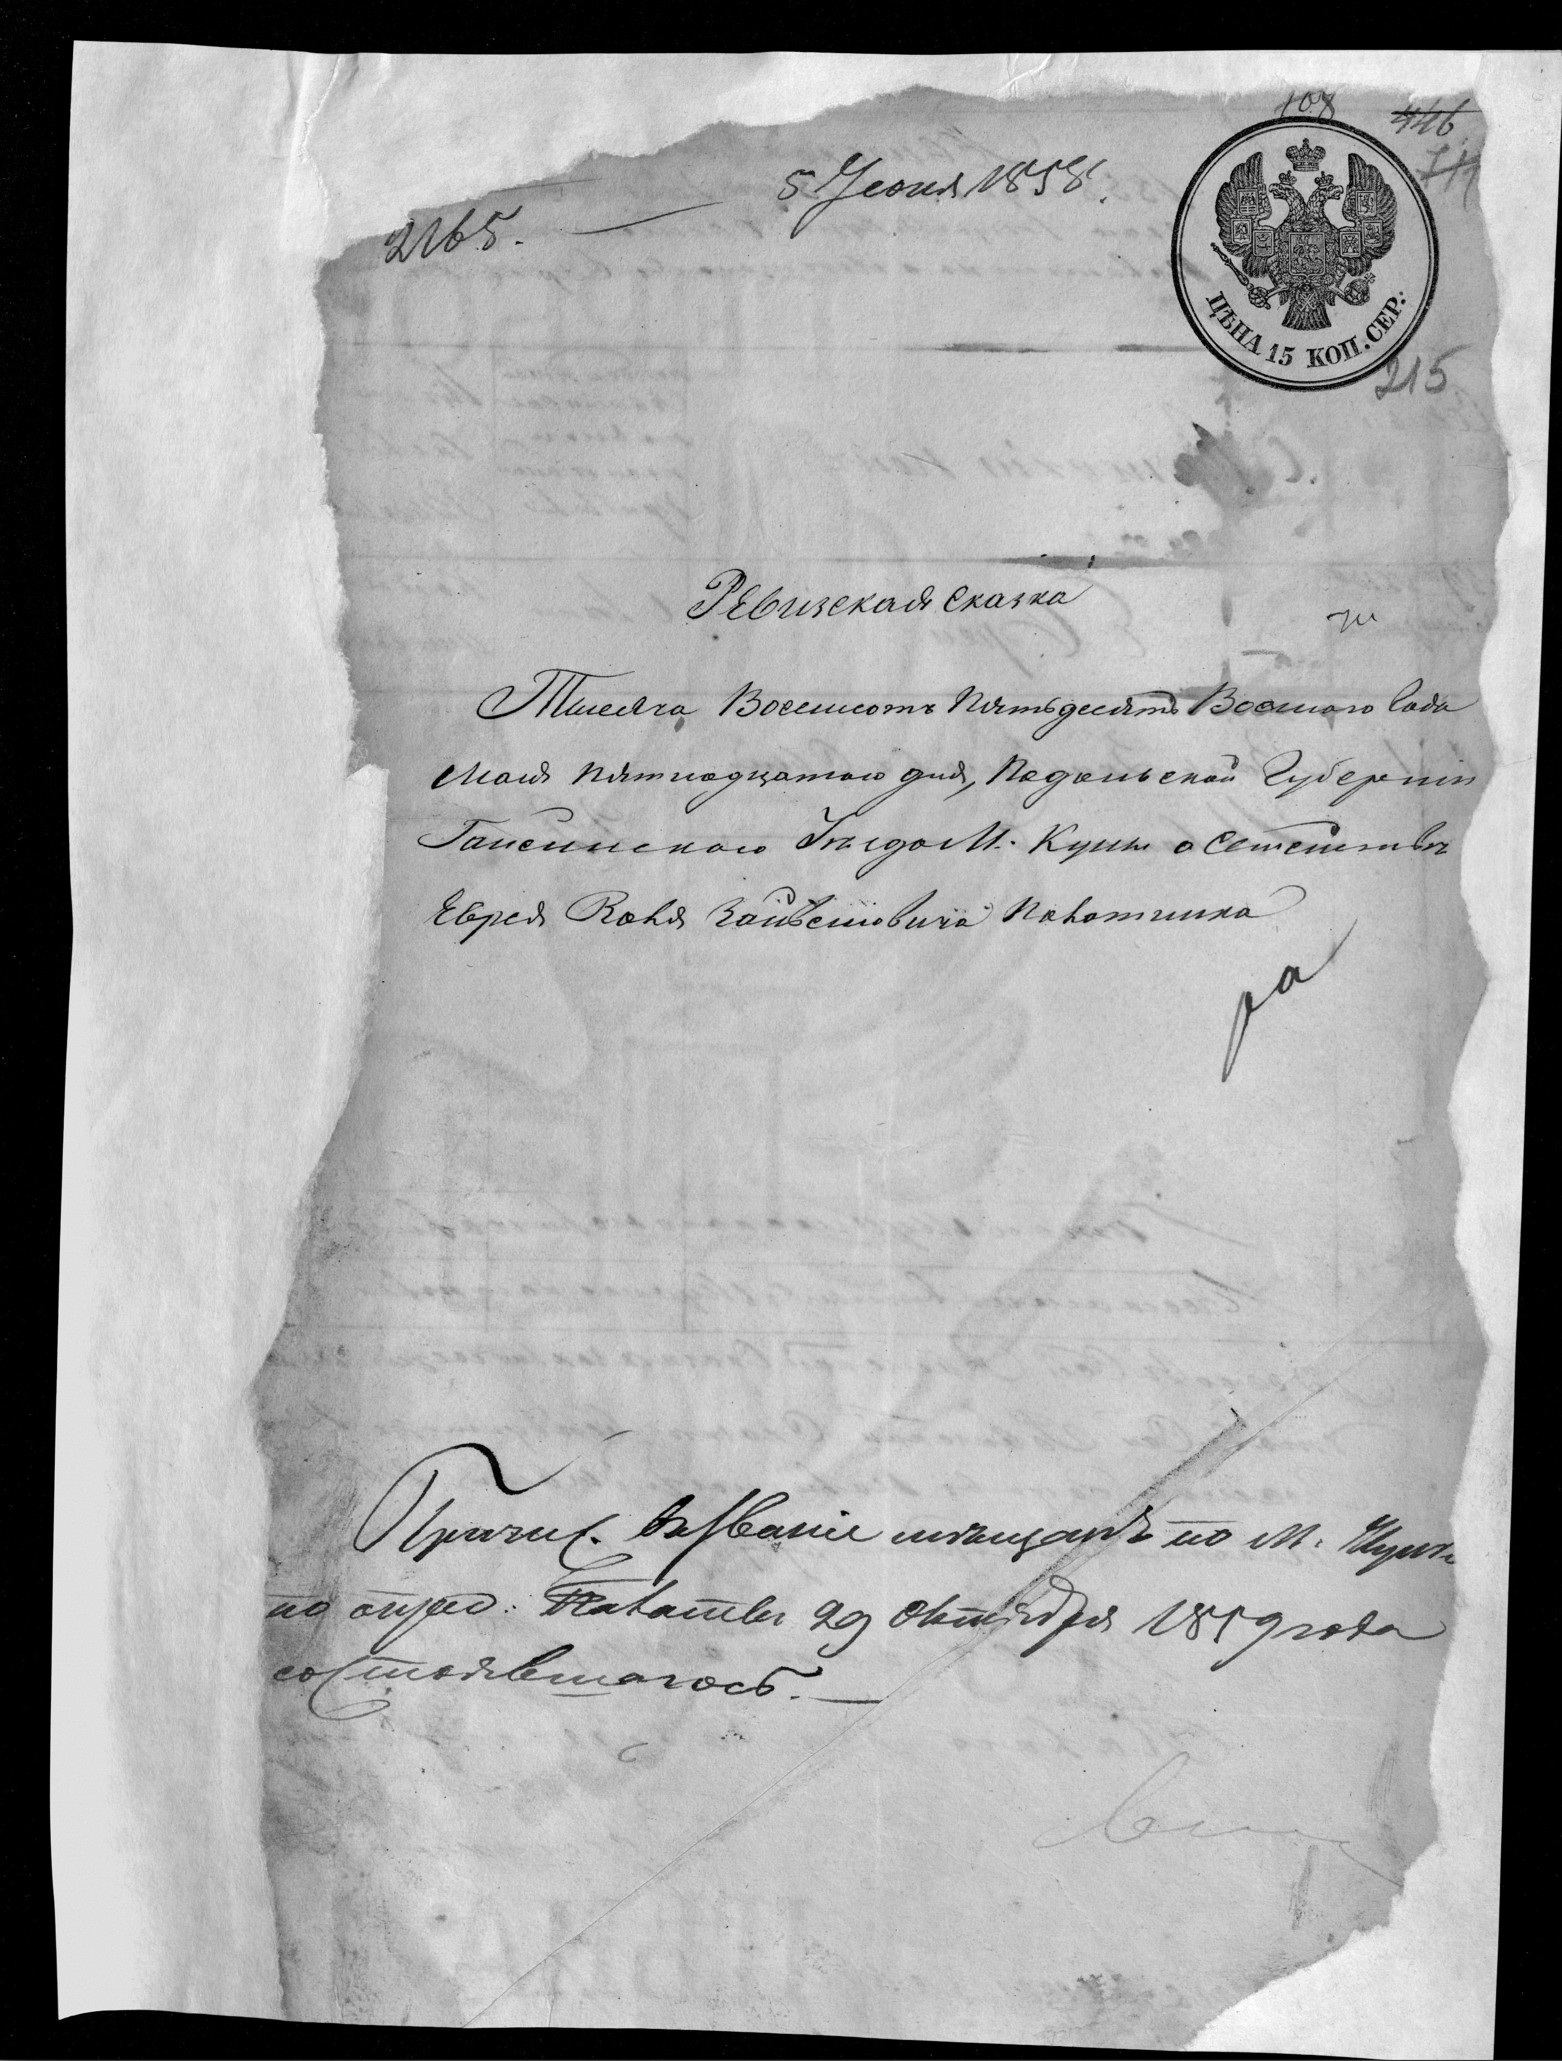 108
446
5 Іюня 1858.
2165.
ЦѢНА 15 КОП. СЕР.
215
Ревизская сказка
Тысяча Восемсотъ Пятьдесятъ Восмаго Года
Мая пятнадцатаго дня, Подольской Губерніи
Гайсинского Уѣзда М. Куны о
Еврея
ра
Причис. въ званіе мѣщанъ по М. Куны
по опред: Палаты 29 Октября 1859 года
состоявшагось.